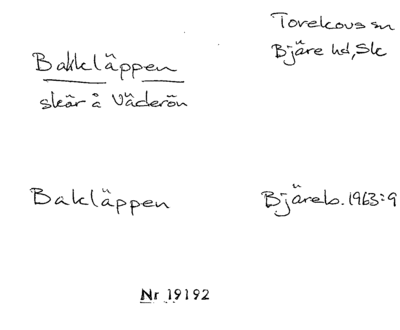 Torekovs sn
Bjäre hd, Sk
Bakkläppen
skär å Väderön
Bakläppen
Bjäreb. 1963:9
Nr 19192